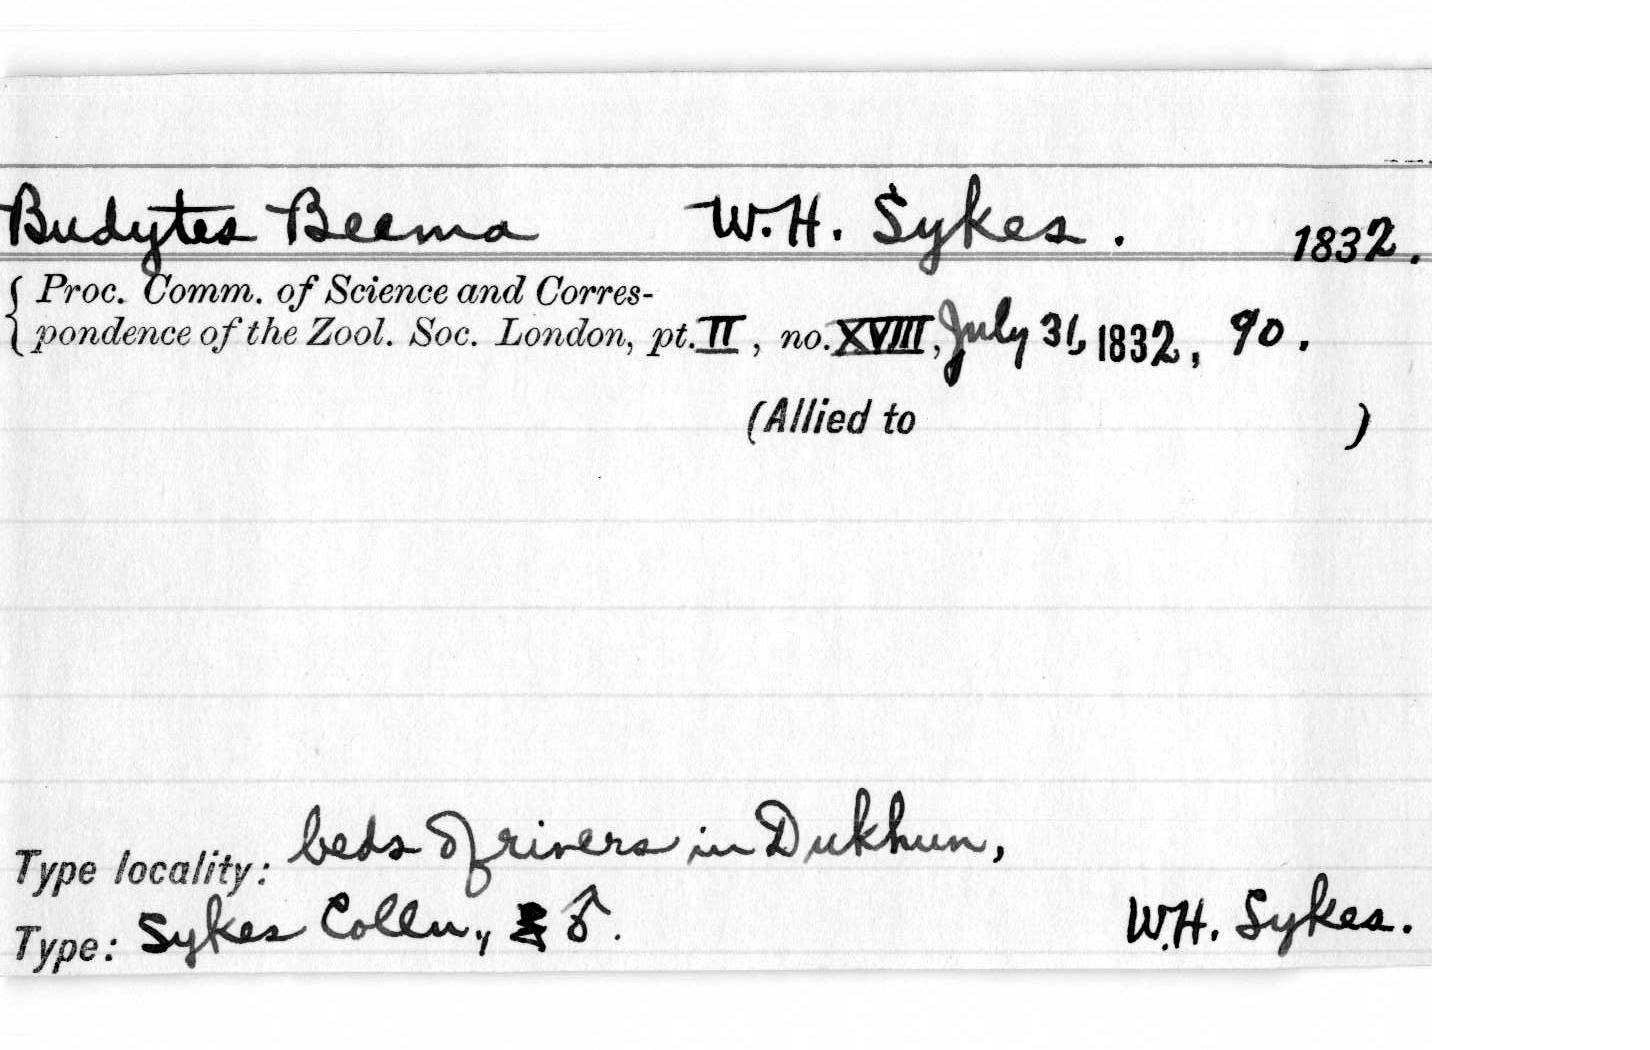 Budytes Beema W.H. Sykes. 1832.
Proc. Comm. of Science and Corres-
pondence of the Zool. Soc. London, pt. II, no. XVIII, July 31, 1832, 90.
(Allied to )
Type locality: beds of rivers in Dukhun,
Type: Sykes Colln., ♂. W.H. Sykes.